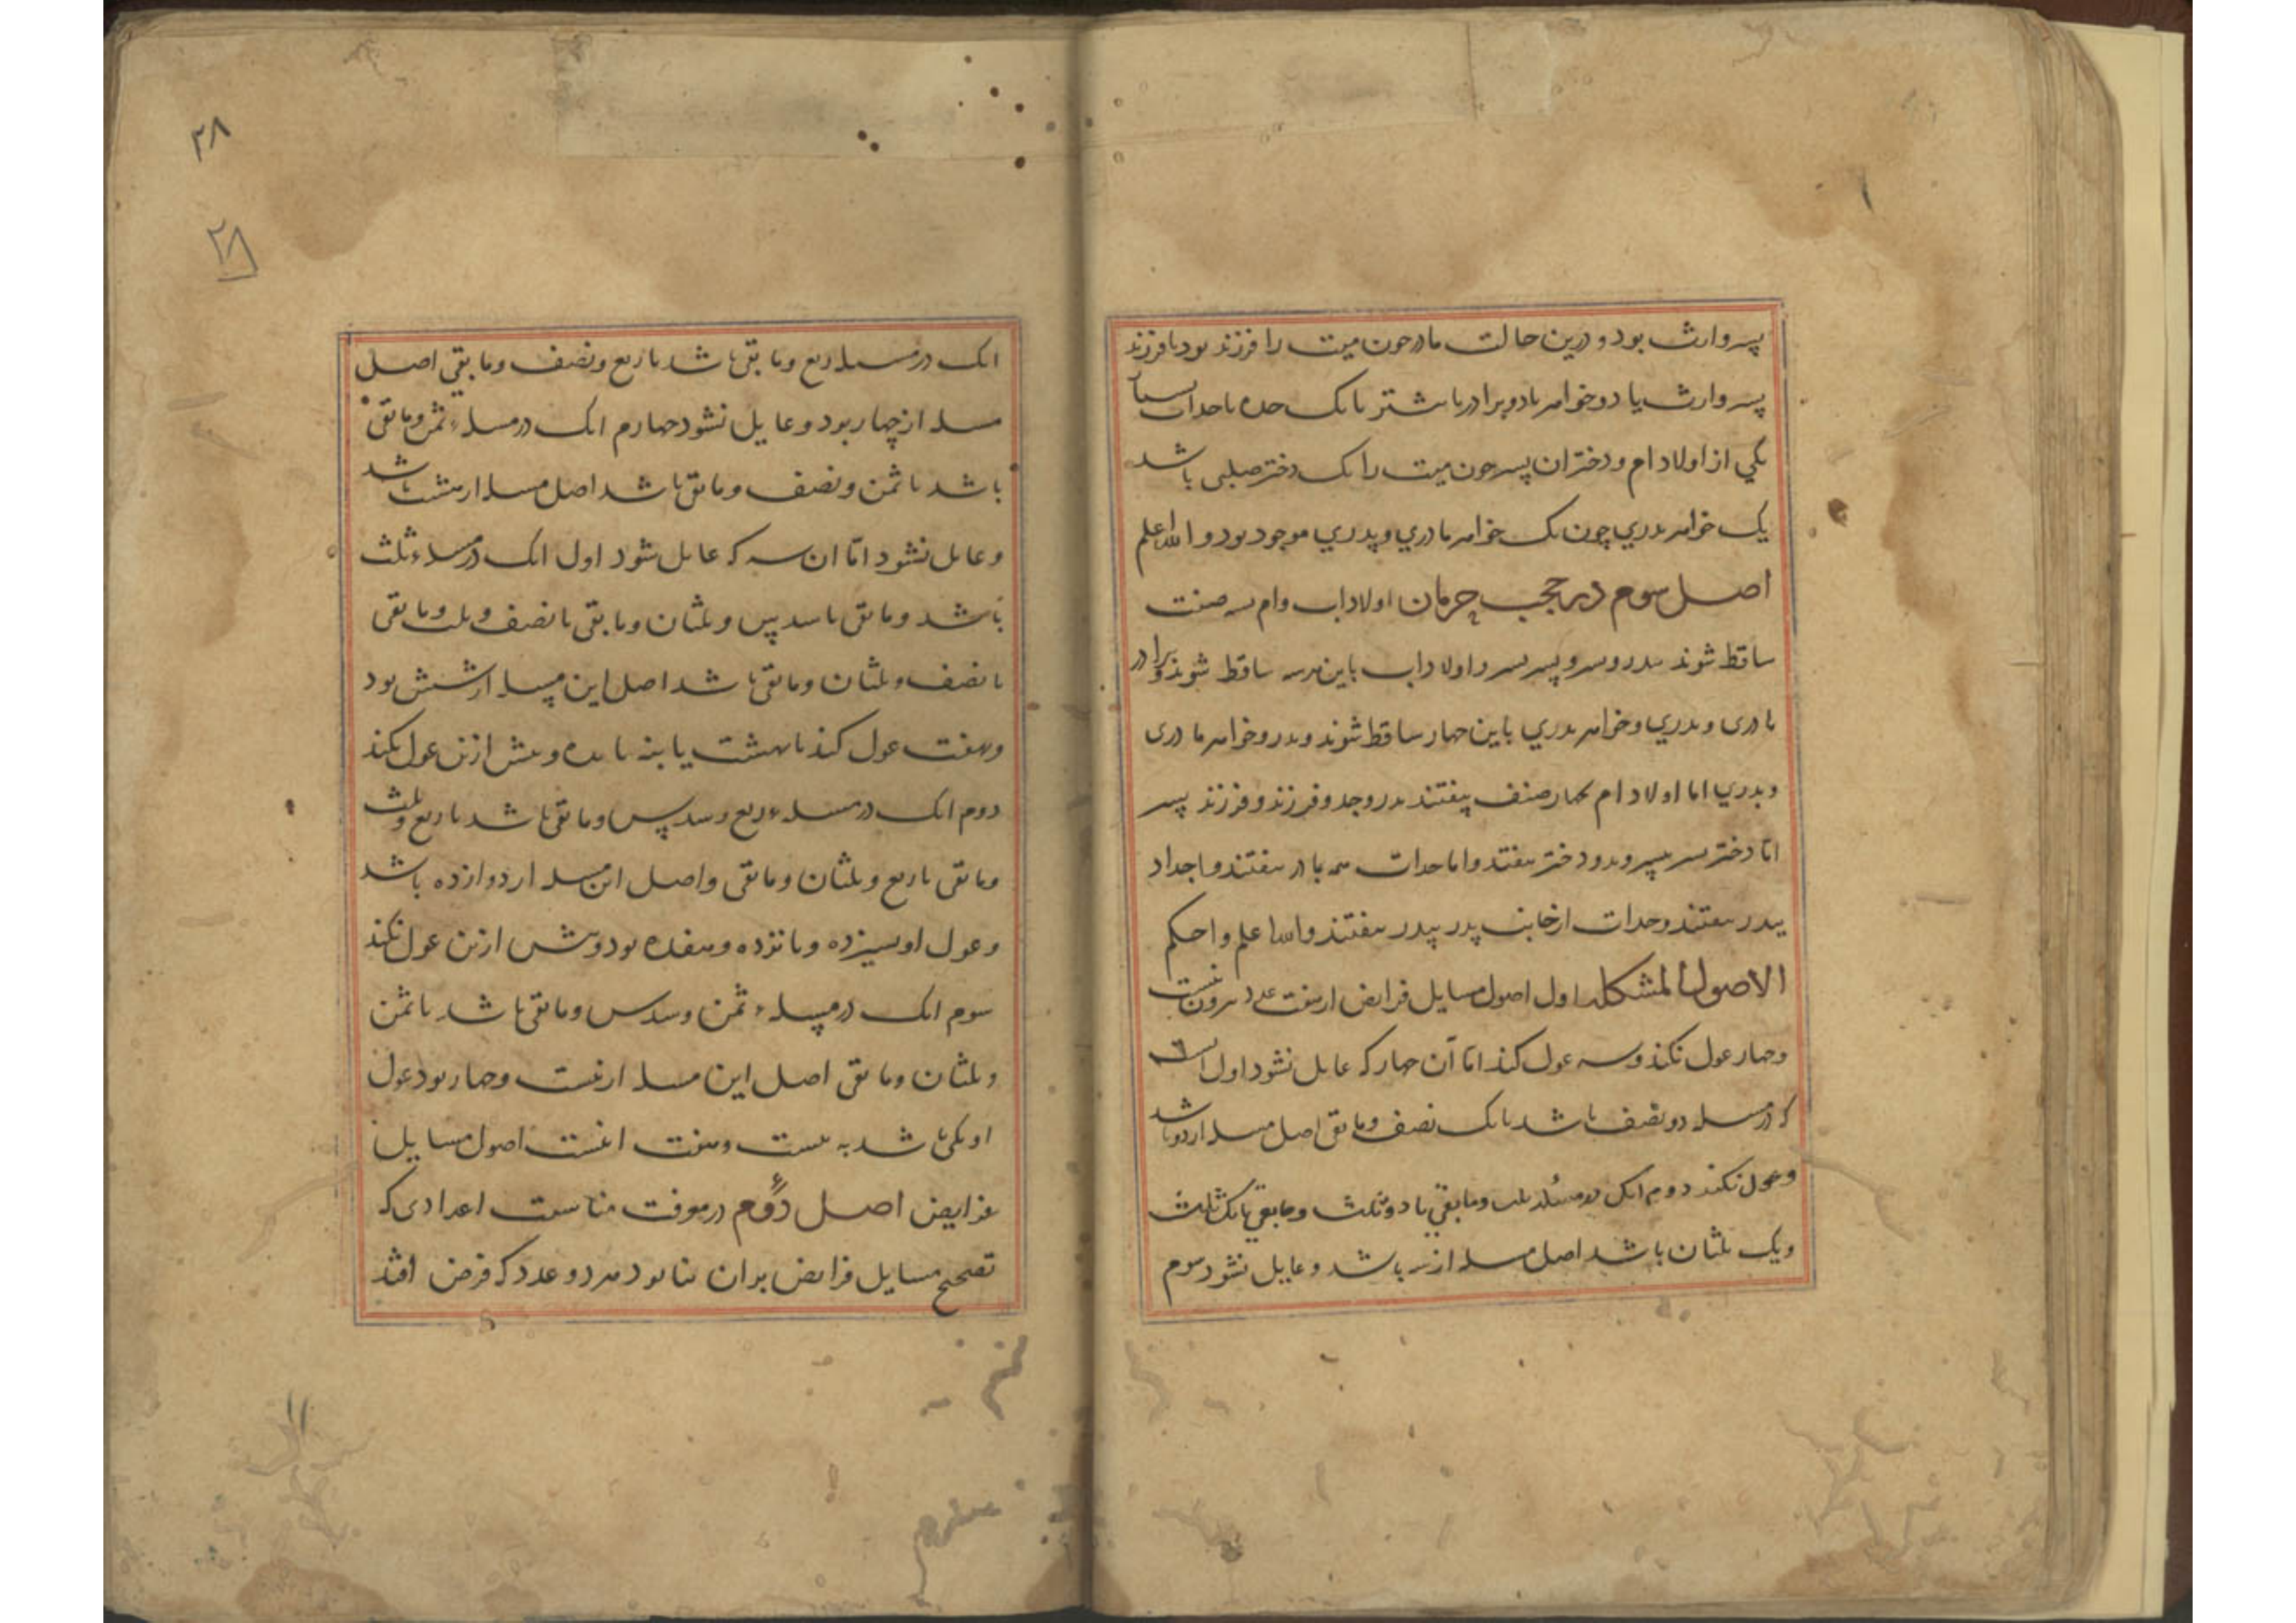 پسر وارث بود و درین حالت مادر چون میت را فرزند بود یا فرزند
پسر وارث یا دو خواهر یا دو برادر یا بیشتر یا یک جده با جدات
یکی از اولاد ام و دختران پسر چون میت را یک دختر صلبی باشد
یک خواهر پدری چون یک خواهر مادری و پدری موجود بود و الله اعلم
اصل سوم در حجب حرمان اولاد اب و ام بسه صنف
ساقط شوند بپدر و پسر و پسر پسر و اولاد اب باین هر سه ساقط شوند و برادر
مادری و پدری و خواهر پدری باین چهار ساقط شوند و پدر و خواهر مادری
و پدری اما اولاد ام بچهار صنف بیفتند پدر و جد و فرزند و فرزند پسر
اما دختر پسر بپسر و بدو دختر بیفتند و اما جدات همه بمادر بیفتند و اجداد
بپدر بیفتند و جدات از جانب پدر بپدر بیفتند والله اعلم و احکم
الاصول المشکله اول اصول مسایل فرایض از هفت عدد بیرون نیست
و چهار عول نکند و سه عول کند اما آن چهار که عایل نشود اول آنست
که در مسله دو نصف باشد یا یک نصف و مابقی اصل مسله از دو باشد
و عول نکند دوم انک در مسئله ثلث و مابقی یا دو ثلث و مابقی یا یک ثلث
و یک ثلثان باشد اصل مسله از سه باشد و عایل نشود سوم
۲۸
۲۸
انک در مسله ربع و مابقی باشد یا ربع و نصف و مابقی اصل
مسله از چهار بود و عایل نشود چهارم انک در مسلهء ثمن و مابقی
باشد یا ثمن و نصف و مابقی باشد اصل مسله از هشت باشد
و عایل نشود اما ان سه که عایل شود اول انک در مسلهء ثلث
باشد و مابقی یا سدس و ثلثان و مابقی یا نصف و ثلث و مابقی
یا نصف و ثلثان و مابقی باشد اصل این مسله از شش بود
و بهفت عول کند یا بهشت یا بنه یا بده و بیش ازین عول نکند
دوم انک در مسلهء ربع و سدس و مابقی باشد یا ربع و ثلث
و مابقی یا ربع و ثلثان و مابقی و اصل این مسله از دوازده باشد
و عول او بسیزده و پانزده و هفده بود و بیش ازین عول نکند
سوم انک در مسلهء ثمن و سدس و مابقی باشد یا ثمن
و ثلثان و مابقی اصل این مسله از بیست و چهار بود عول
او یکی باشد به بیست و هفت اینست اصول مسایل
فرایض اصل دوم در معرفت مناسبت اعدادی که
تصحیح مسایل فرایض بران بنا بود هر دو عدد که فرض افتد